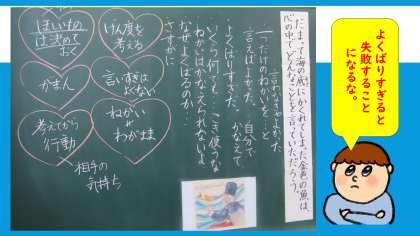 だまって海の底にかくれてしまった金色の魚は、
心の中で、どんなことを言っていただろう。
言わなきゃよかった。
一つだけのねがいを…と
言えばよかった。自分で
かなえて
・よくばりすぎた。
・いくら何でも、こき使うな
ねがいはかなえられないよ
なぜよくばるのか…
さすがに
ほしいもの
は決めて
おく
けん度を
考える
がまん
言いすぎは
よくない
考えてから
行動
ねがい
わがまま
相手の
気持ち
よくばりすぎると
失敗すること
になるな。